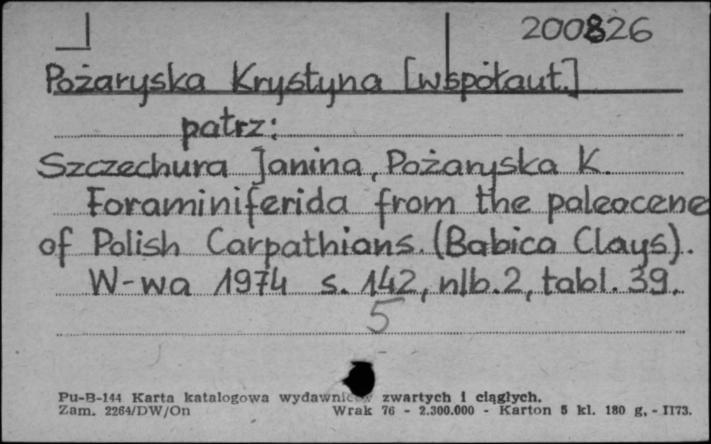 200826
Pożaryska Krystyna [współaut.]
patrz:
Szczechura Janina, Pożaryska K.
Foraminiferida from the paleocene
of Polish Carpathians. (Babica Clays).
W-wa 1974 s. 142, nlb. 2, tabl. 39.
5
Pu-B-144 Karta katalogowa wydawnictw zwartych i ciągłych.
Zam. 2264/DW/On Wrak 76 - 2.300.000 - Karton 5 kl. 180 g. - II73.